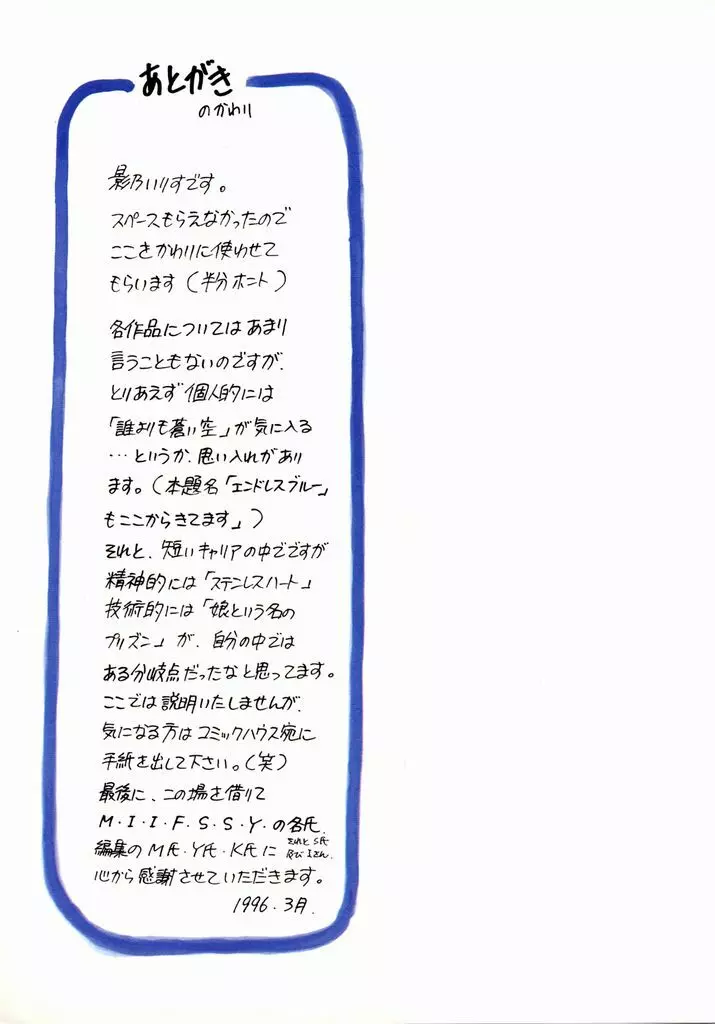 あとがき
のかわり
影乃いりすです。
スペースもらえなかったので
ここをかわりに使わせて
もらいます(半分ホント)
各作品についてはあまり
言うこともないのですが、
とりあえず個人的には
「誰よりも蒼い空」が気に入る
…というか、思い入れがあり
ます。(本題名「エンドレスブルー」
もここからきてます」)
それと、短いキャリアの中でですが
精神的には「ステンレスハート」
技術的には「娘という名の
プリズン」が、自分の中では
ある分岐点だったなと思ってます。
ここでは説明いたしませんが、
気になる方はコミックハウス宛に
手紙を出して下さい。(笑)
最後に、この場を借りて
M・I・I・F・S・S・Y・の各氏、
編集のM氏・Y氏・K氏に それと S氏 及び Iさん、
心から感謝させていただきます。
1996.3月.